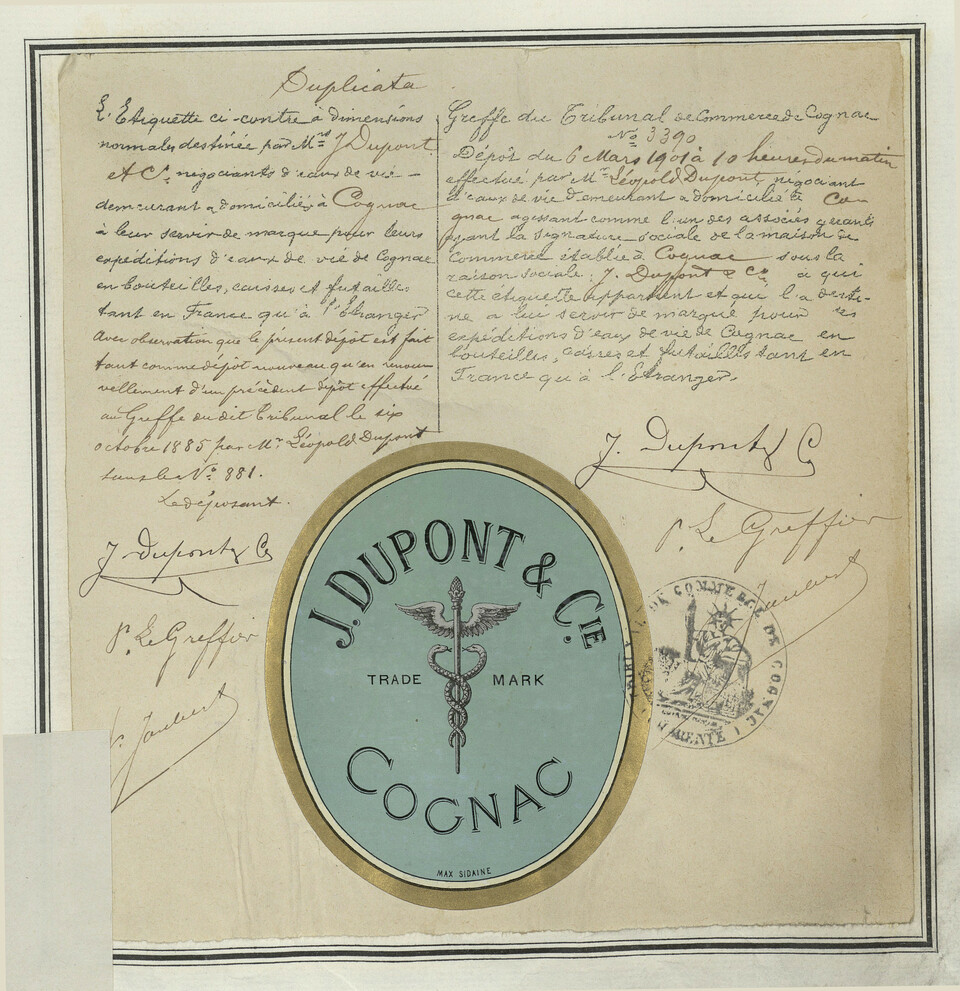 Duplicata
L'Etiquette ci-contre à dimensions
normales destinée par Mrs J Dupont
et Cie négociants d'eaux de vie
demeurant & domiciliés à Cognac
à leur servir de marque pour leurs
expéditions d'eaux de vie de Cognac
en bouteilles, caisses et futailles
tant en France qu'à l'Etranger
Avec observation que le présent dépôt est fait
tant comme dépôt nouveau qu'en renou
vellement d'un précédent dépôt effectué
au Greffe du dit Tribunal le six
octobre 1885 par Mr Léopold Dupont
sous le No 881.
Le déposant.
J. Dupont & Co
P. Le Greffier
Joubert
Greffe du Tribunal de Commerce de Cognac
No 3390
Dépôt du 6 Mars 1901 à 10 heures du matin
effectué par Mr Léopold Dupont, négociant
d'eaux de vie demeurant & domicilié à Co-
gnac agissant comme l'un des associés gérants
ayant la signature sociale de la maison de
Commerce établie à Cognac sous la
raison sociale: J. Dupont & Cie à qui
cette étiquette appartient et qui l'a desti-
né à lui servir de marque pour ses
expéditions d'eaux de vie de Cognac en
bouteilles, caisses et futailles tant en
France qu'à l'Etranger.
J. Dupont & Co
P. Le Greffier
Joubert
J. DUPONT & CIE
TRADE MARK
COGNAC
MAX SIDAINE
DE COMMERCE DE COGNAC